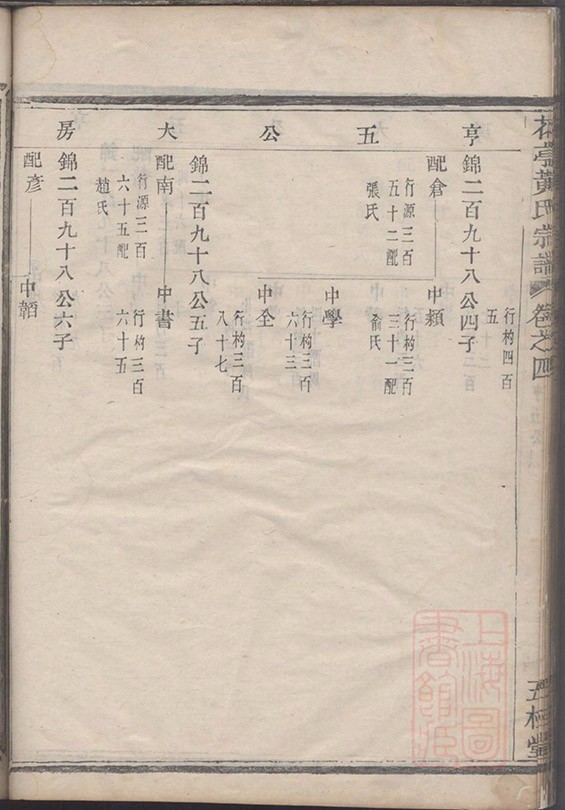 亨五公大房
行杓四百
五
錦二百九十八公四子
配倉
行源三百
五十二配
張氏
中穎
行杓三百
三十一配
俞氏
中學
行杓三百
六十三
中全
行杓三百
八十七
錦二百九十八公五子
配南
行源三百
六十五配
趙氏
中書
行杓三百
六十五
錦二百九十八公六子
配彥
中韜
黃氏宗譜
卷之四
五桂堂
上海圖
書館藏